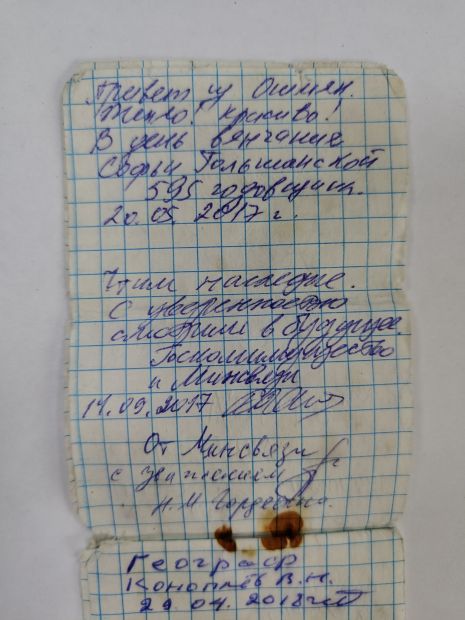 Привет из Ошмян.
Тепло! Красиво!
В день венчания
Софьи Гольшанской
595 годовщина.
20.05.2017 г.
Чтим наследие.
С уверенностью
смотрим в будущее.
Госкомимущество
и Минсвязи
14.09.2017
От Минсвязи
с уважением
Н.М. Гордеенко.
Географ
Коноплёв В.Н.
29.04.2018